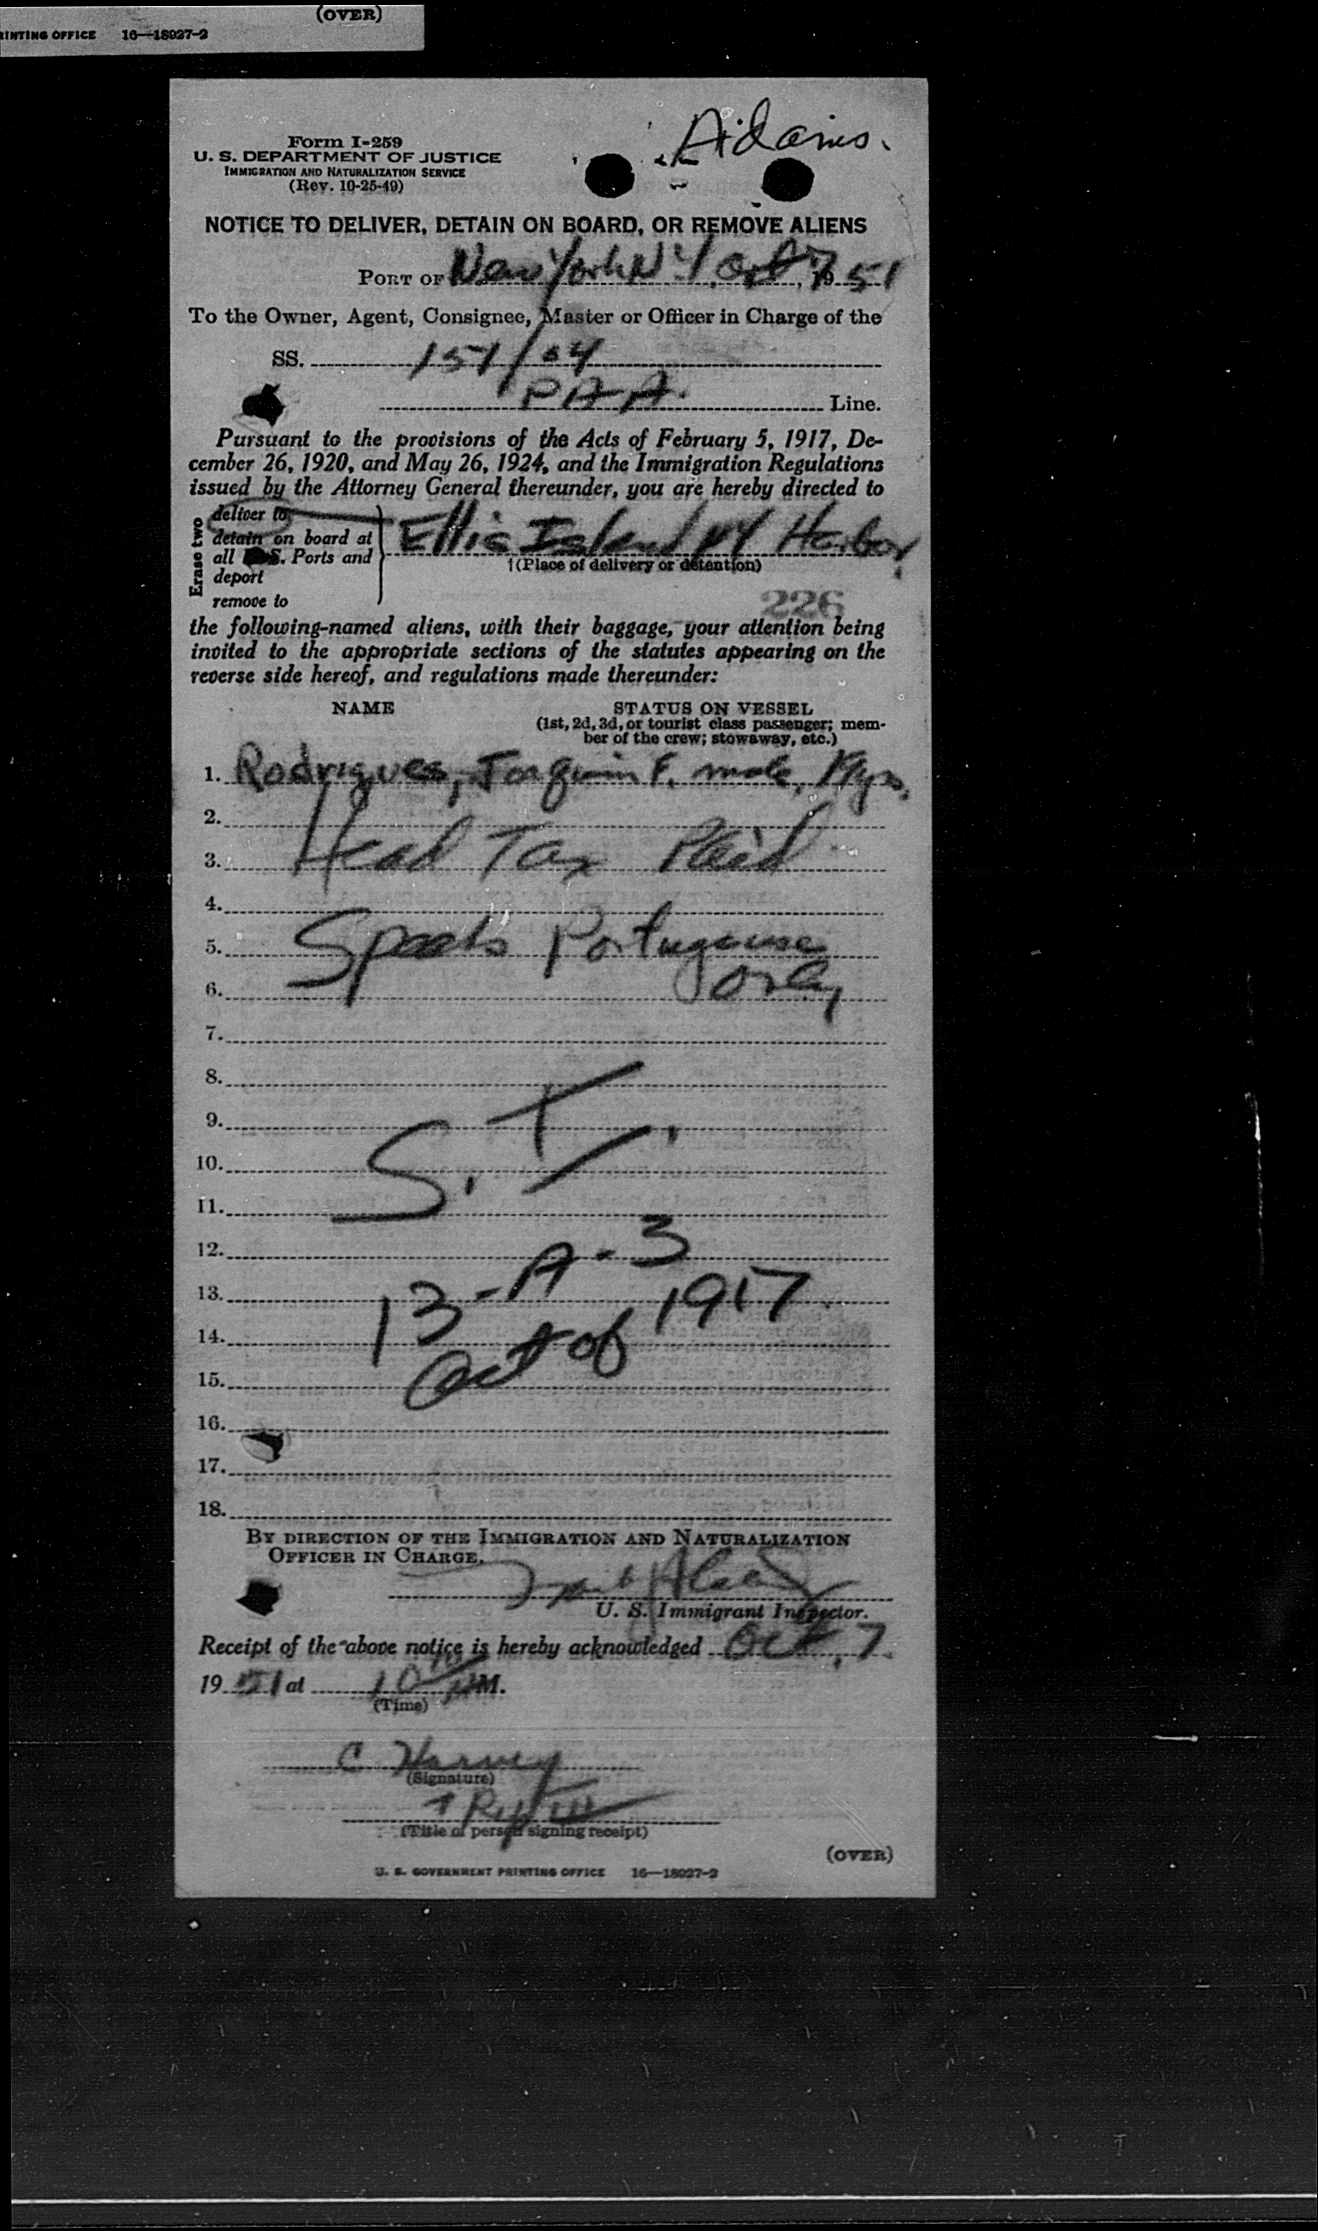 (OVER)
RINTING OFFICE 16—18027-2
Adams.
Form I-259
U. S. DEPARTMENT OF JUSTICE
IMMIGRATION AND NATURALIZATION SERVICE
(Rev. 10-25-49)
NOTICE TO DELIVER, DETAIN ON BOARD, OR REMOVE ALIENS
PORT OF New York NY, Oct 7, 1951
To the Owner, Agent, Consignee, Master or Officer in Charge of the
SS. 151/04
PAA. Line.
Pursuant to the provisions of the Acts of February 5, 1917, De-
cember 26, 1920, and May 26, 1924, and the Immigration Regulations
issued by the Attorney General thereunder, you are hereby directed to
Erase two
deliver to
detain on board at
all S. Ports and
deport
remove to
Ellis Island NY Harbor
†(Place of delivery or detention)
226
the following-named aliens, with their baggage, your attention being
invited to the appropriate sections of the statutes appearing on the
reverse side hereof, and regulations made thereunder:
NAME STATUS ON VESSEL
(1st, 2d, 3d, or tourist class passenger; mem-
ber of the crew; stowaway, etc.)
1. Rodrigues, Joaquim F. male,
2.
3. Head Tax Paid
4.
5. Speaks Portuguese
6. only
7.
8.
9.
10. S. I.
11.
12.
13. 13-A-3
14. Act of 1917
15.
16.
17.
18.
BY DIRECTION OF THE IMMIGRATION AND NATURALIZATION
OFFICER IN CHARGE.
U. S. Immigrant Inspector.
Receipt of the above notice is hereby acknowledged Oct. 7
1951 at 10 M.
(Time)
C Harvey
(Signature)
(Title of person signing receipt)
(OVER)
U. S. GOVERNMENT PRINTING OFFICE 16—18027-2